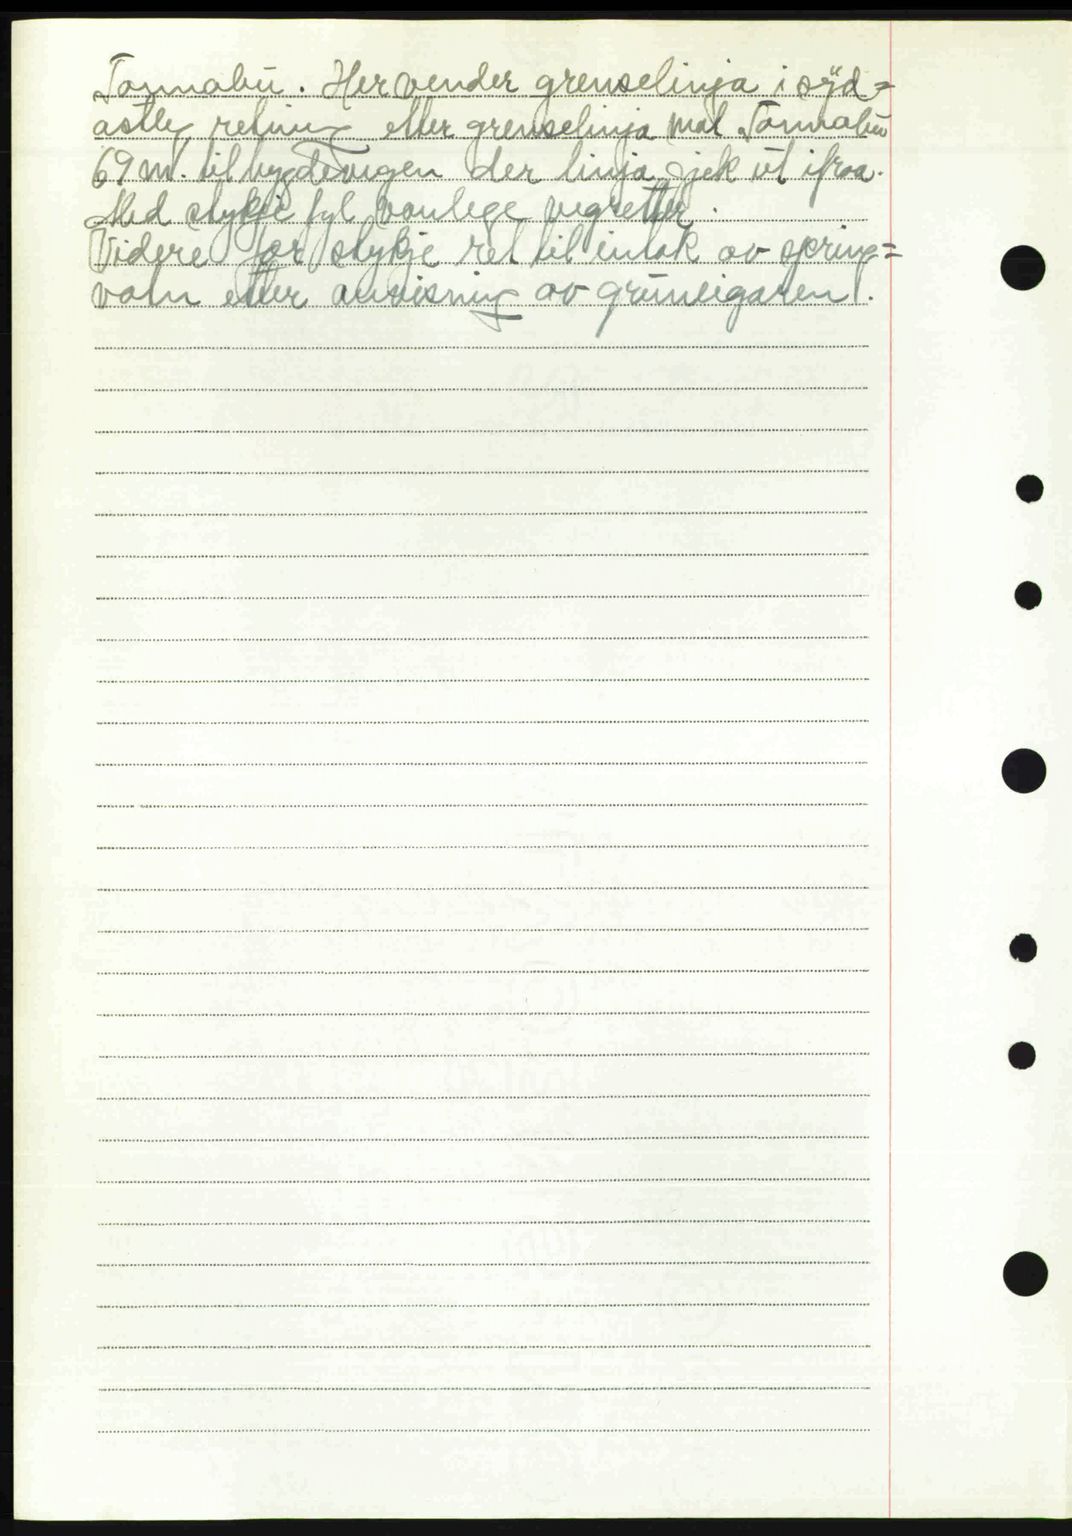 Tonnabu. Her vender grenselinja i syd=
astleg retning etter grenselinja mot Tonnabu
69 m. til bygdevegen der linja gjek ut ifraa.
Med stykje fyl vanlege vegretter.
Videre før stykje ret til intak av spring=
vatn etter anvisning av gruneigaren.